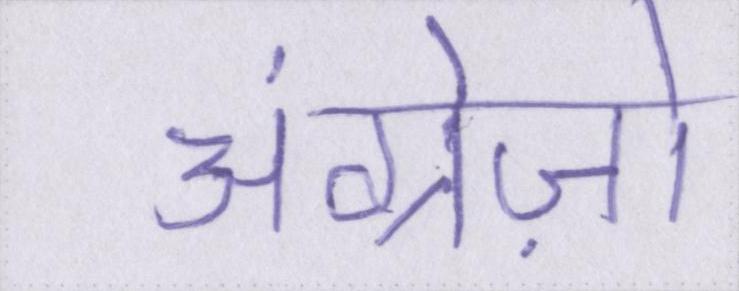 अंग्रेज़ो